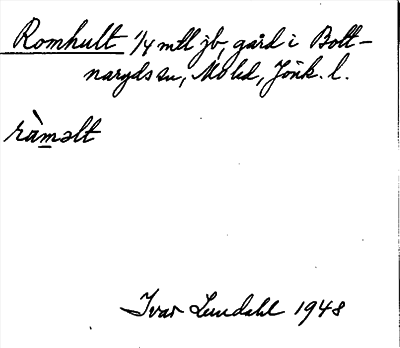 Romhult 1/4 mtl jb, gård i Bott-
naryds sn, Mo hd, Jönk. l.
ràməlt
Ivar Lundahl 1948